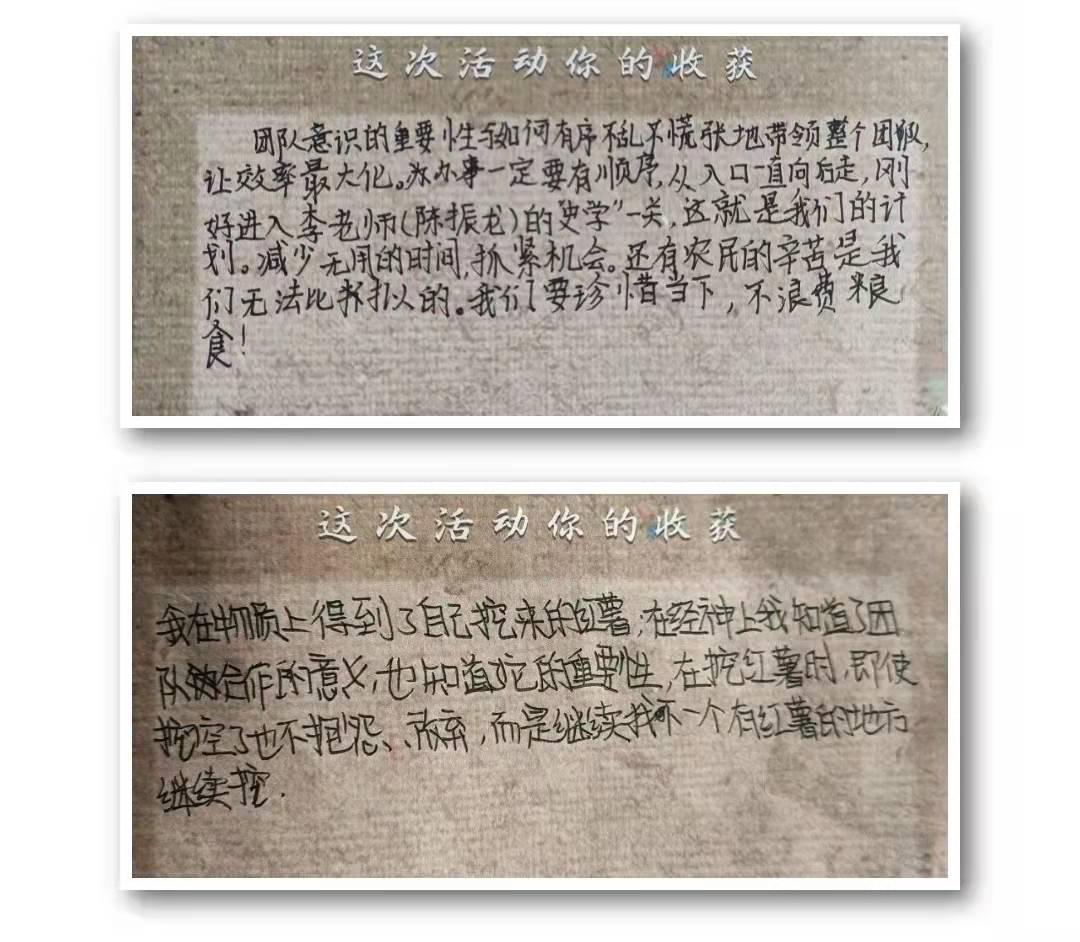 这次活动你的收获
团队意识的重要性与如何有序不乱不慌张地带领整个团队,
让效率最大化。办事一定要有顺序,从入口一直向后走,刚
好进入李老师(陈振龙)的"史学"一关,这就是我们的计
划。减少无用的时间,抓紧机会。还有农民的辛苦是我
们无法比拟的。我们要珍惜当下,不浪费粮
食!
这次活动你的收获
我在物质上得到了自己挖来的红薯,在经神上我知道了团
队合作的意义,也知道它的重要性,在挖红薯时,即使
挖空了也不抱怨、放弃,而是继续找下一个有红薯的地方
继续挖.